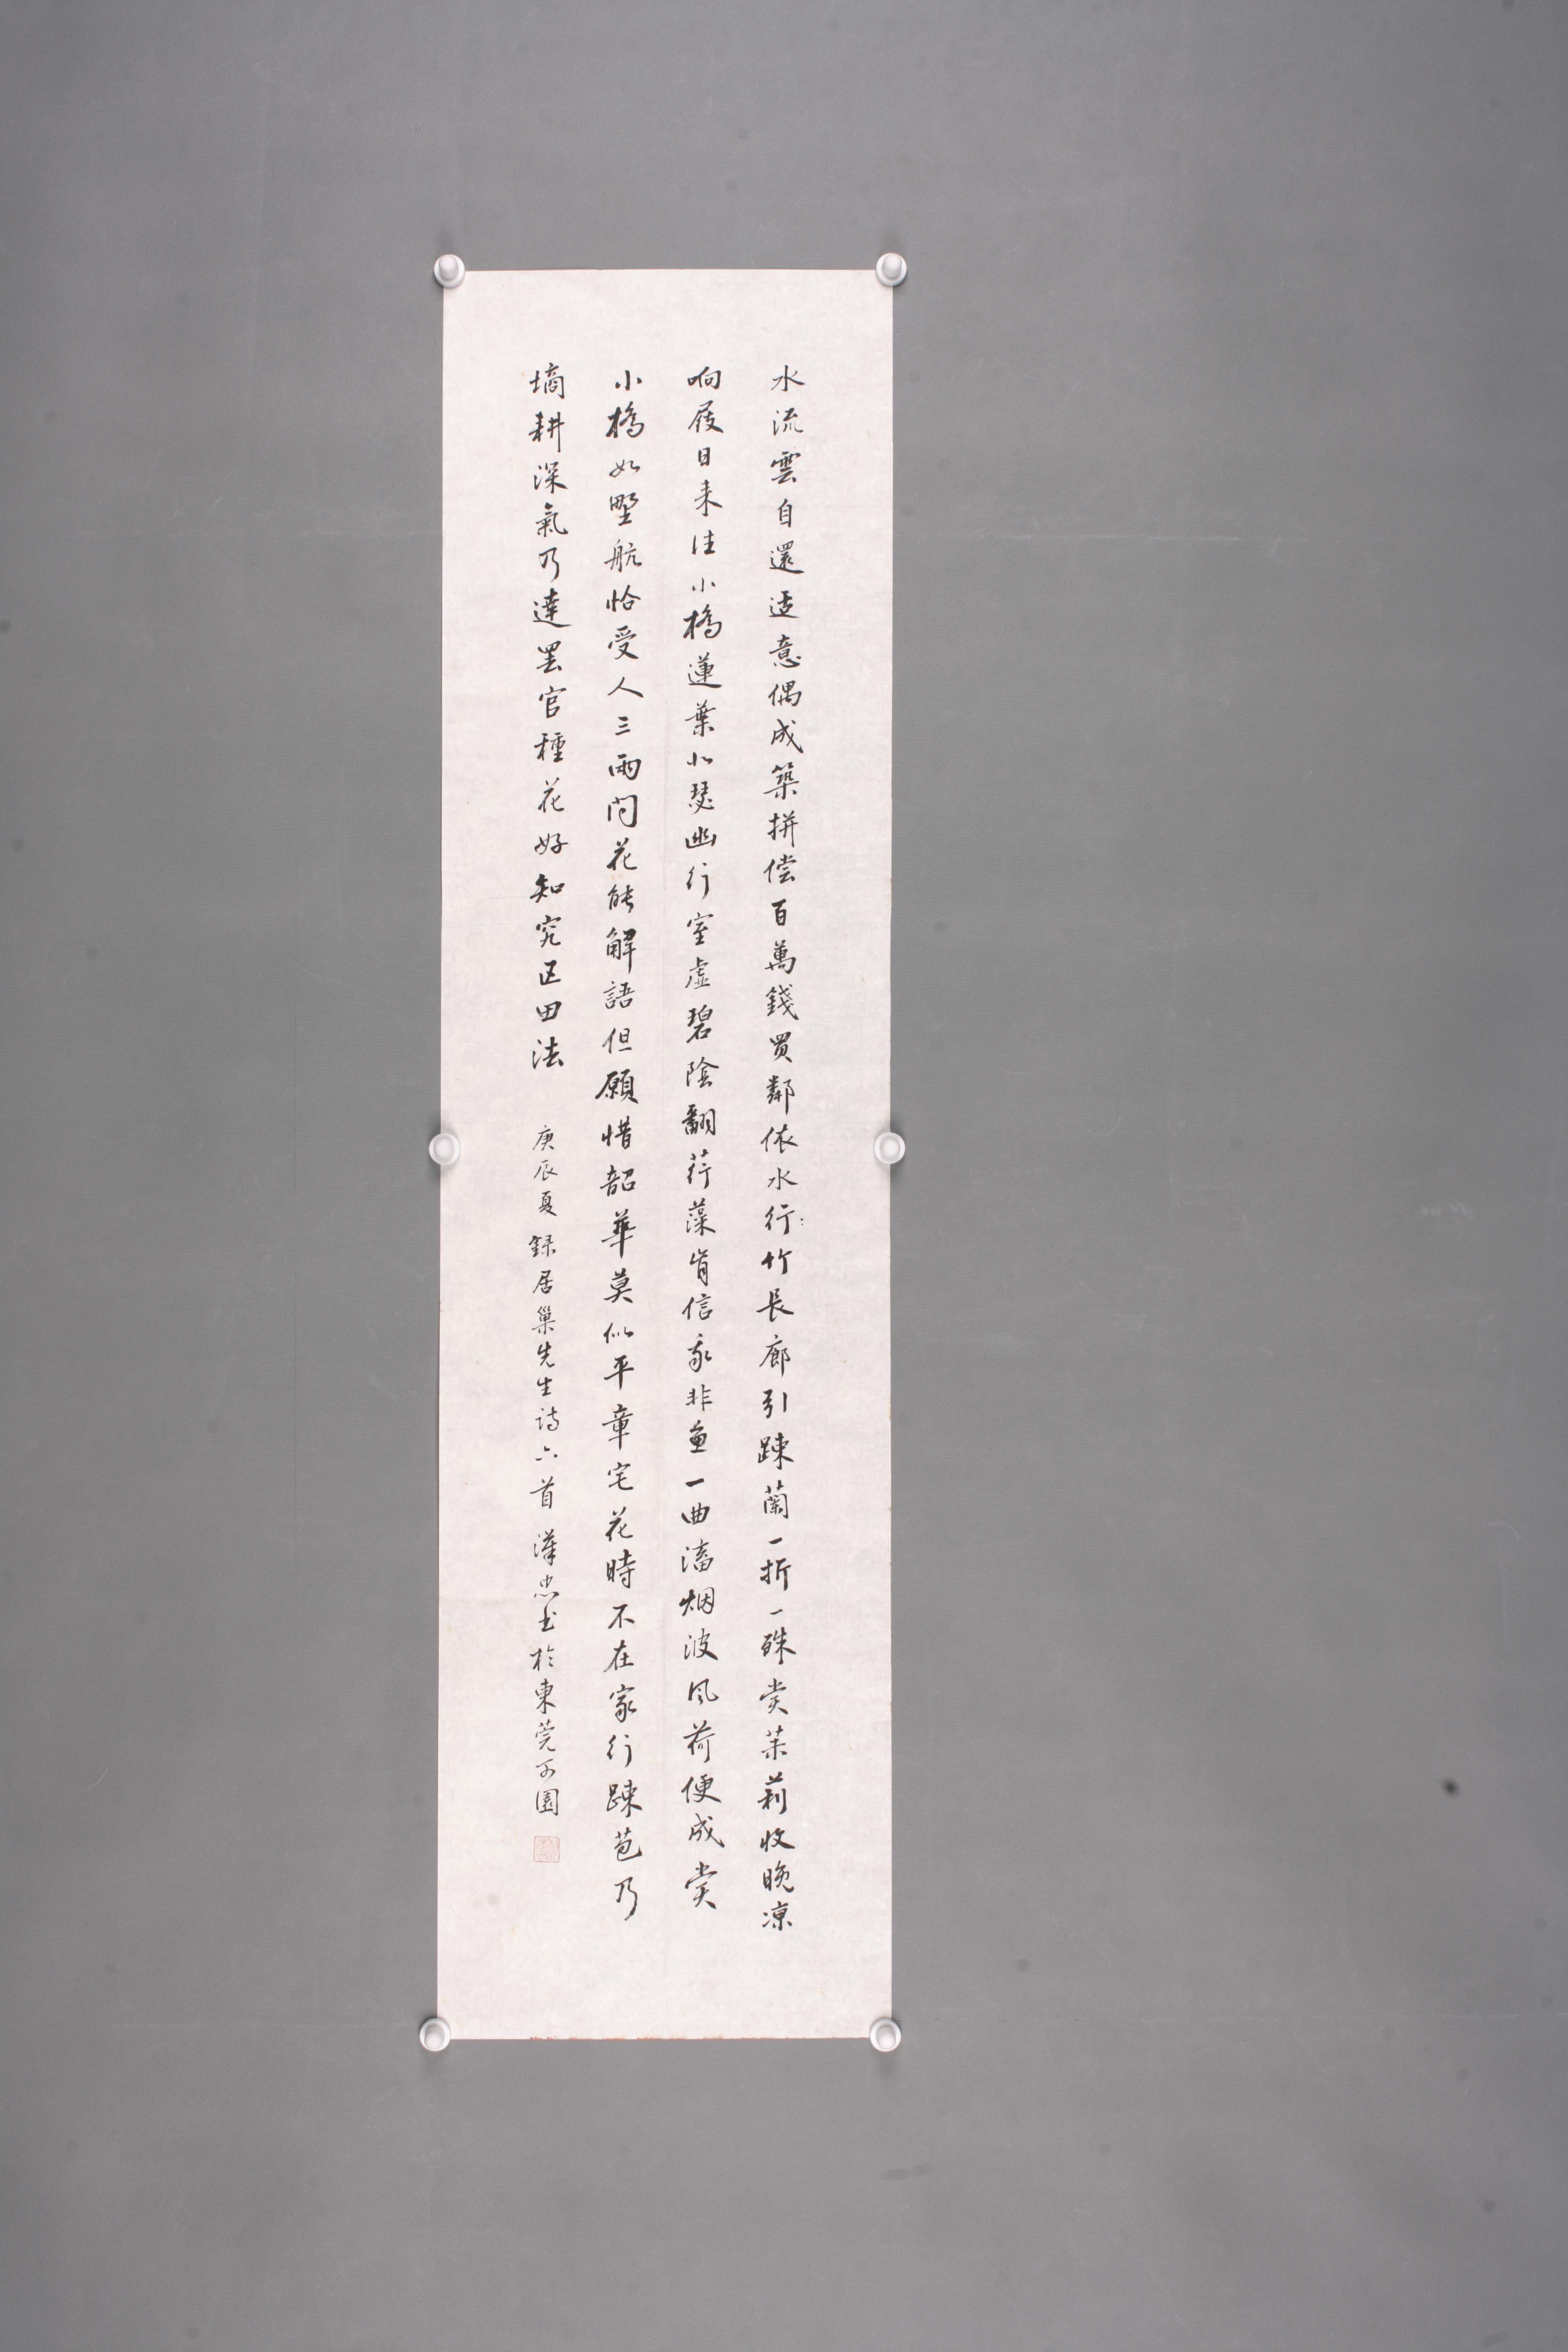 水流雲自還适意偶成築拼偿百萬錢買鄰依水行：竹長廊引疎蘭一折一殊賞茉莉收晚凉
响屐日来往小橋蓮葉北瑟幽行室虚碧陰翻荇藻肯信我非魚一曲滀烟波风荷便成賞
小橋如野航恰受人三兩問花能解語但願惜韶華莫似平章宅花時不在家行疎苞乃
墒耕深氣乃達罢官種花好知究区田法 庚辰夏 録居巢先生诗六首 漢忠书於東莞可園